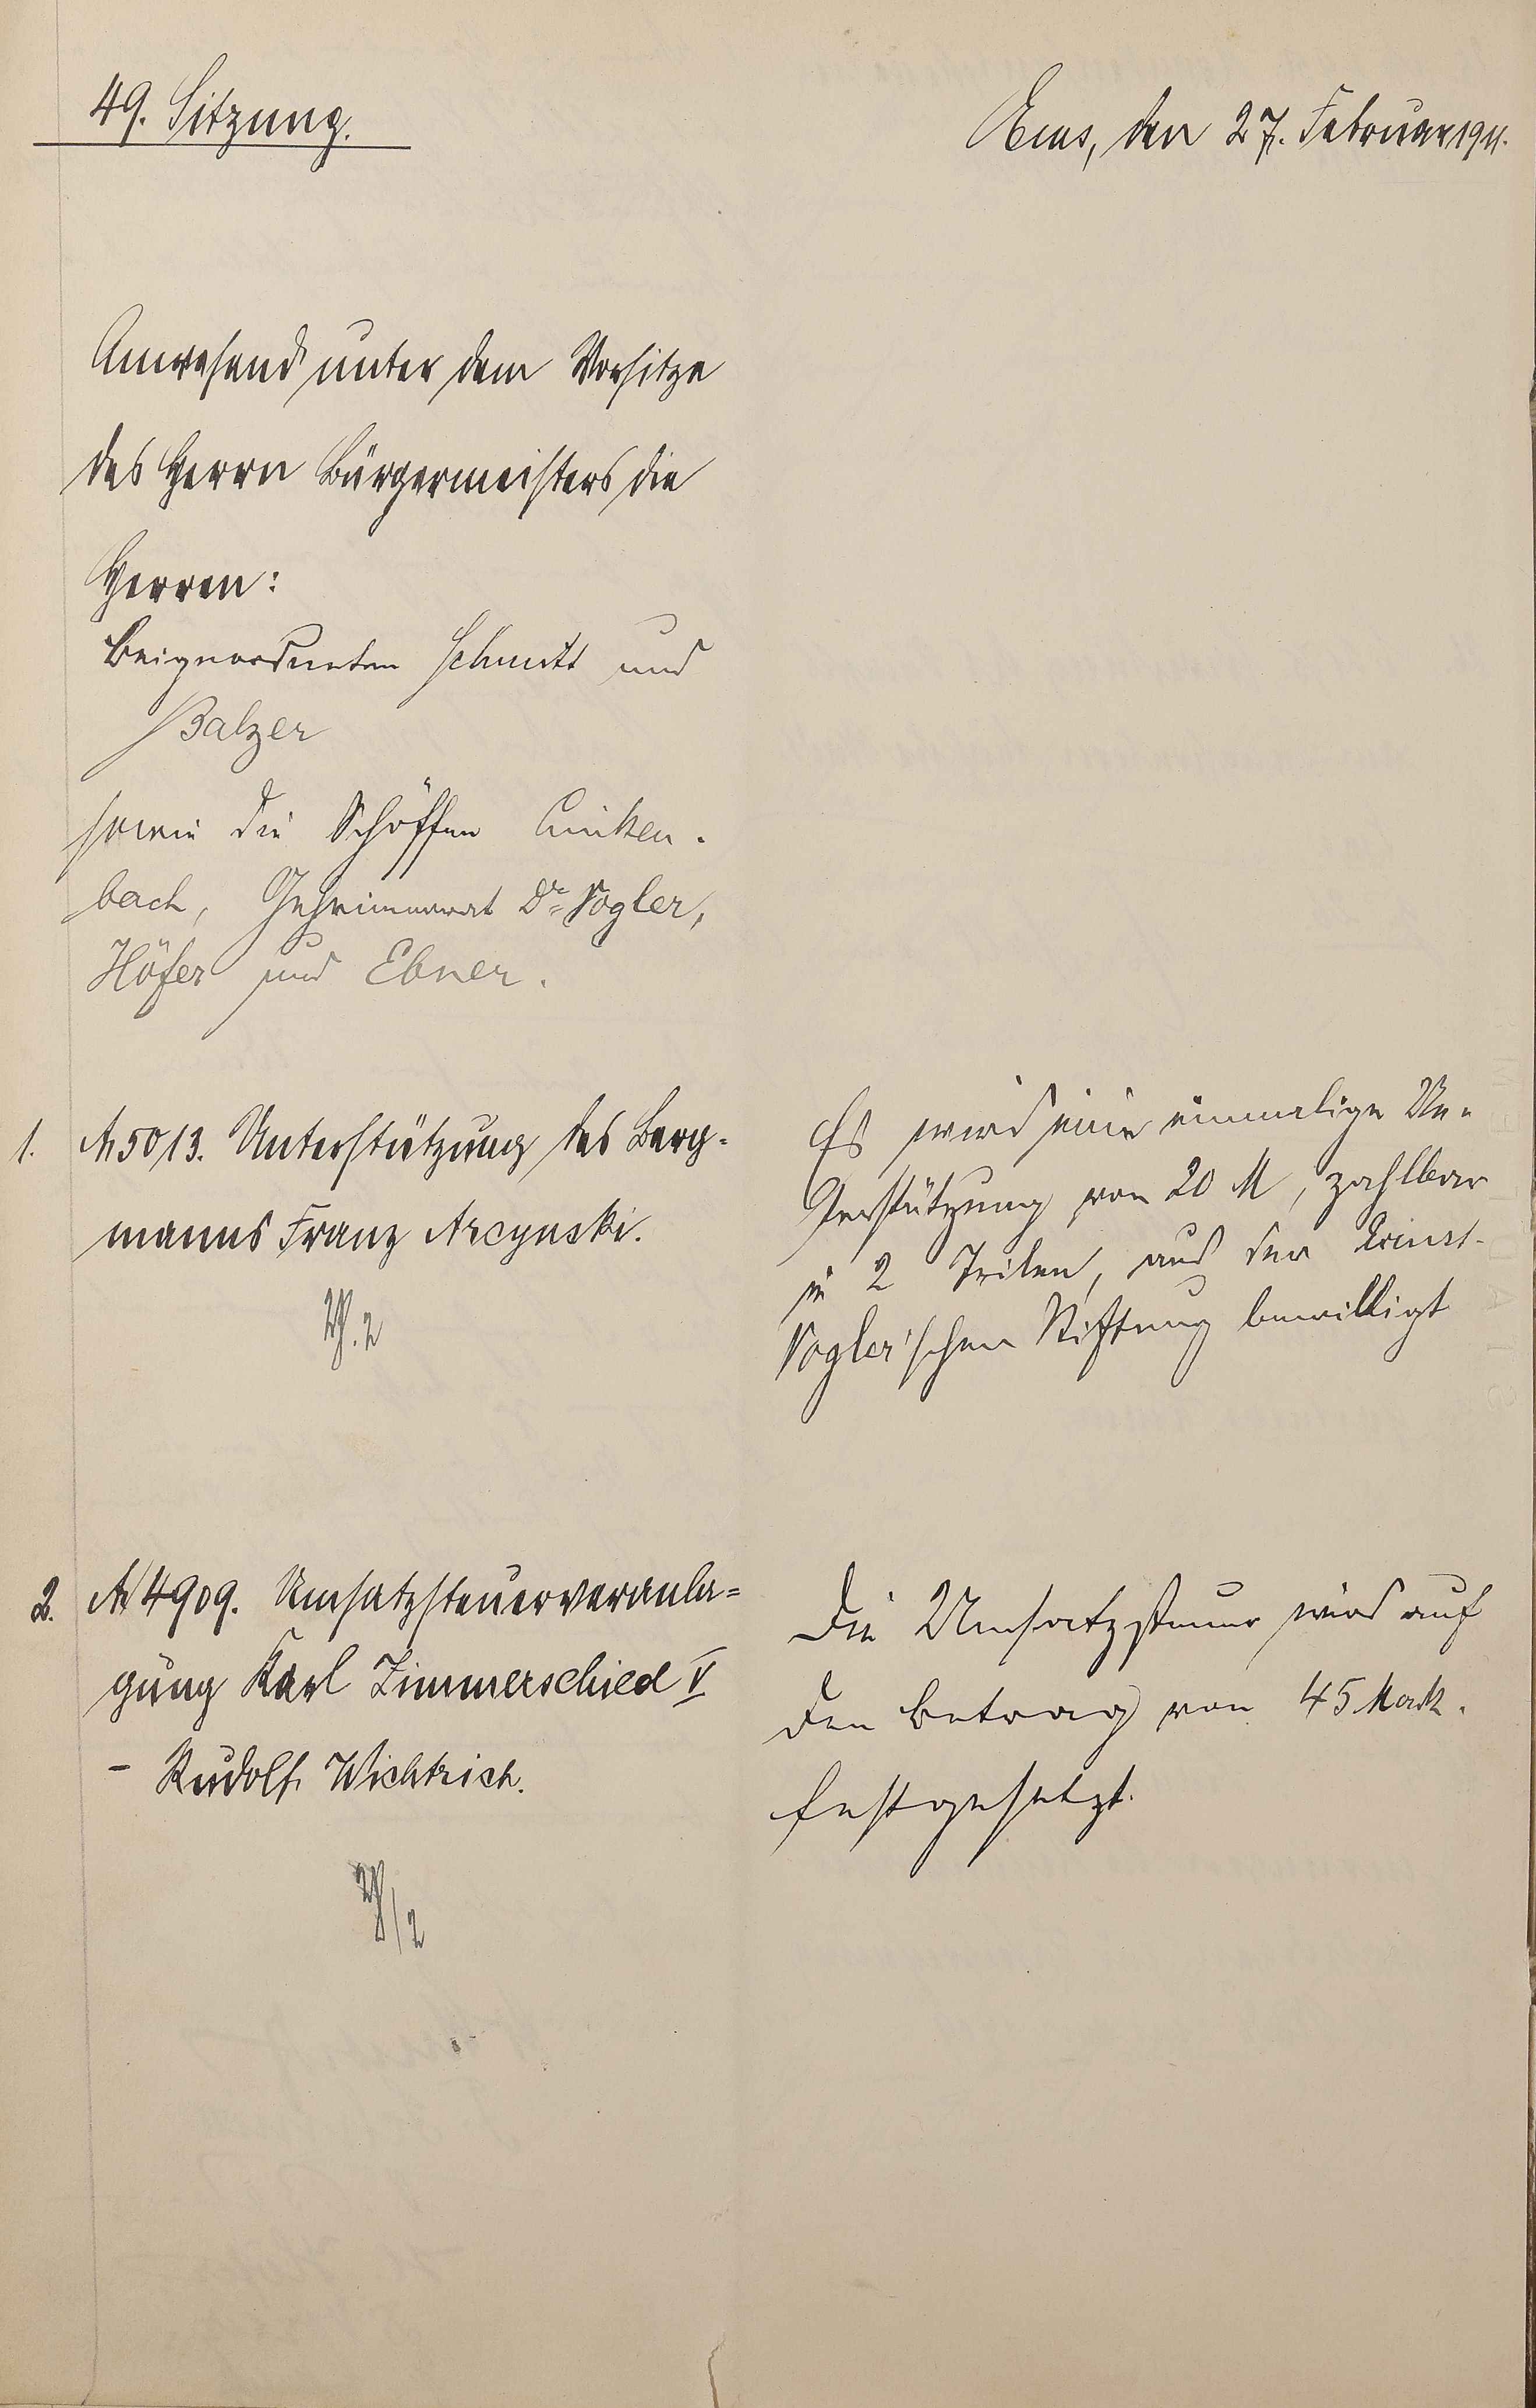 49. Sitzung.
Ems, den 27. Februar 1911.
Anwesend unter dem Vorsitze
des Herrn Bürgermeisters die
Herren:
Beigeordneten Schmitt und
Balzer
sowie die Schöffen Linken-
bach, Geheimrat Dr. Vogler,
Höfer und Ebner.
1. A 5013. Unterstützung des Berg-
manns Franz Arcynski.
Es wird eine einmalige Un-
terstützung von 20 M, zahlbar
in 2 Teilen, aus der
Vogler'schen Stiftung bewilligt
2. A 4909. Umsatzsteuerveranla-
gung Karl Zimmerschied V
- Rudolf Wichtrich.
Die Umsatzsteuer wird auf
den Betrag von 45 Mark.
festgesetzt.